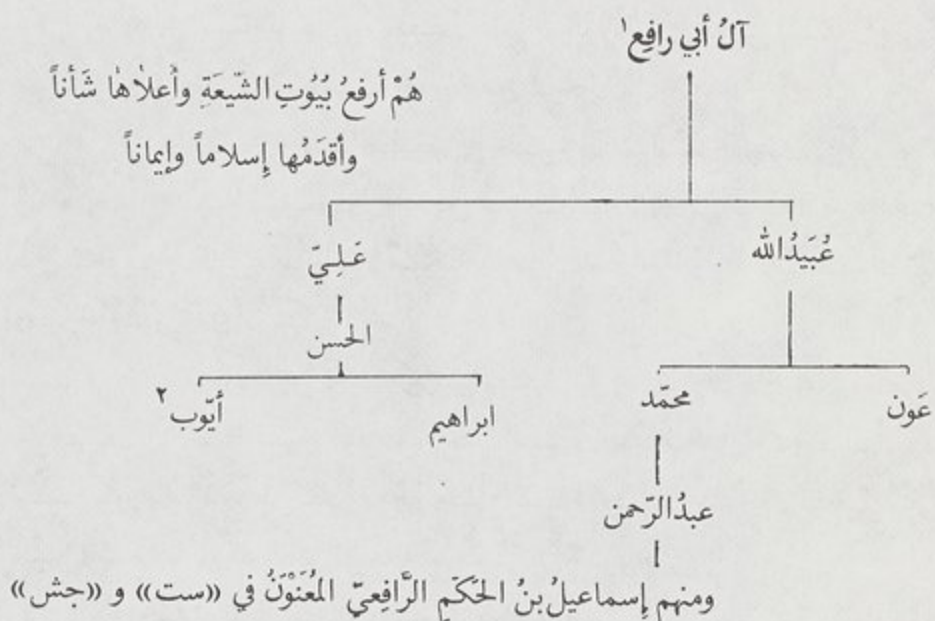 آلُ أبي رافِع١
هُمْ أرفعُ بُيُوتِ الشّيعَةِ وأعلاها شَأناً
وأقدَمُها إسلاماً وإيماناً
عُبَيدُالله
عَلِيّ
الحسن
عَون
محمّد
ابراهيم
أيّوب٢
عبدُالرّحمن
ومنهم إسماعيلُ بنُ الحَكَمِ الرَّافِعيّ المُعَنْوَنُ في «ست» و «جش»